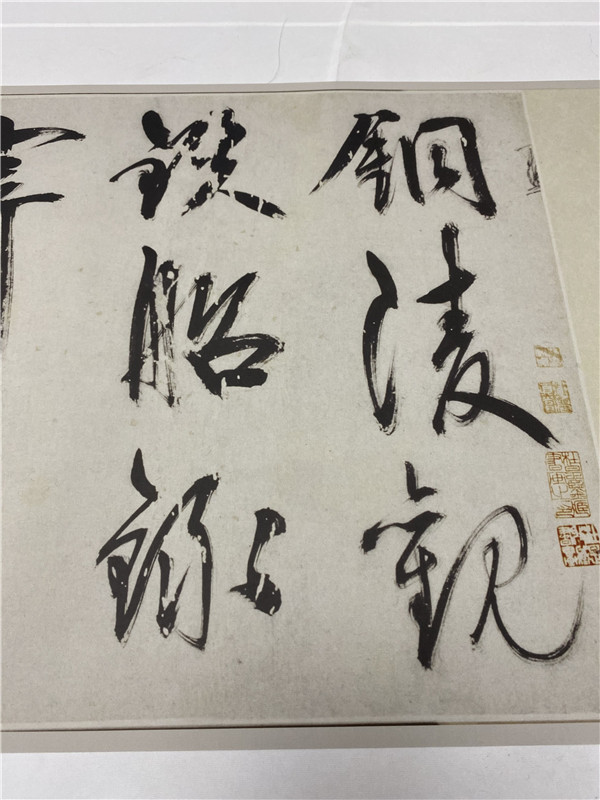 銅陵觀
鐵船錄